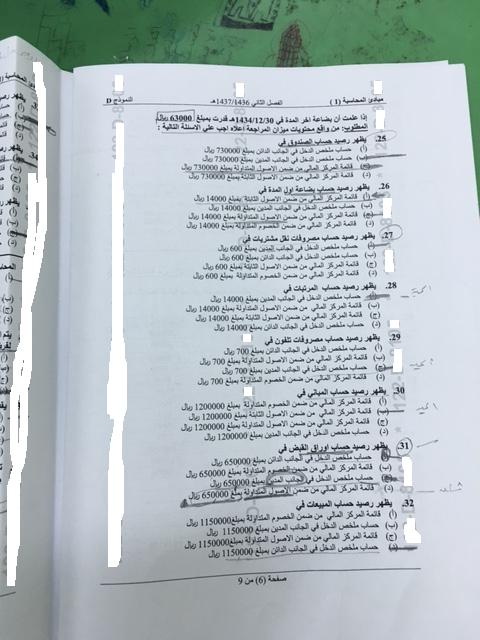 مبادئ المحاسبة (1) الفصل الثاني 1437/1436هـ النموذج D
إذا علمت أن بضاعة آخر المدة في 1434/12/30هـ قدرت بمبلغ 63000 ريال
المطلوب: من واقع محتويات ميزان المراجعة إعلاه اجب علي الاسئلة التالية :
25. يظهر رصيد حساب الصندوق في
أ) حساب ملخص الدخل في الجانب الدائن بمبلغ 730000 ريال
ب) حساب ملخص الدخل في الجانب المدين بمبلغ 730000 ريال
قائمة المركز المالي من ضمن الاصول المتداولة بمبلغ 730000 ريال
د) قائمة المركز المالي من ضمن الاصول الثابتة بمبلغ 730000 ريال
26. يظهر رصيد حساب بضاعة اول المدة في
أ) قائمة المركز المالي من ضمن الاصول الثابتة بمبلغ 14000 ريال
ب) حساب ملخص الدخل في الجانب المدين بمبلغ 14000 ريال
ج) قائمة المركز المالي من ضمن الاصول المتداولة بمبلغ 14000 ريال
د) قائمة المركز المالي من ضمن الخصوم المتداولة بمبلغ 14000 ريال
27. يظهر رصيد حساب مصروفات نقل مشتريات في
حساب ملخص الدخل في الجانب المدين بمبلغ 600 ريال
ب) حساب ملخص الدخل في الجانب الدائن بمبلغ 600 ريال
ج) قائمة المركز المالي من ضمن الاصول الثابتة بمبلغ 600 ريال
د) قائمة المركز المالي من ضمن الخصوم المتداولة بمبلغ 600 ريال
28. يظهر رصيد حساب المرتبات في
حساب ملخص الدخل في الجانب المدين بمبلغ 14000 ريال
ب) قائمة المركز المالي من ضمن الاصول المتداولة بمبلغ 14000 ريال
ج) قائمة المركز المالي من ضمن الاصول الثابتة بمبلغ 14000 ريال
د) حساب ملخص الدخل في الجانب الدائن بمبلغ 14000 ريال
29. يظهر رصيد حساب مصروفات تلفون في
أ) حساب ملخص الدخل في الجانب الدائن بمبلغ 700 ريال
ب) قائمة المركز المالي من ضمن الاصول المتداولة بمبلغ 700 ريال
حساب ملخص الدخل في الجانب المدين بمبلغ 700 ريال
د) قائمة المركز المالي من ضمن الخصوم المتداولة بمبلغ 700 ريال
30. يظهر رصيد حساب المباني في
أ) قائمة المركز المالي من ضمن الخصوم المتداولة بمبلغ 1200000 ريال
ب) قائمة المركز المالي من ضمن الاصول الثابتة بمبلغ 1200000 ريال
ج) قائمة المركز المالي من ضمن الاصول المتداولة بمبلغ 1200000 ريال
د) حساب ملخص الدخل في الجانب المدين بمبلغ 1200000 ريال
31. يظهر رصيد حساب اوراق القبض في
حساب ملخص الدخل في الجانب الدائن بمبلغ 650000 ريال
ب) قائمة المركز المالي من ضمن الخصوم المتداولة بمبلغ 650000 ريال
حساب ملخص الدخل في الجانب بمبلغ 650000 ريال
د) قائمة المركز المالي من ضمن الاصول المتداولة بمبلغ 650000 ريال
32. يظهر رصيد حساب المبيعات في
أ) قائمة المركز المالي من ضمن الخصوم المتداولة بمبلغ 1150000 ريال
ب) حساب ملخص الدخل في الجانب المدين بمبلغ 1150000 ريال
ج) قائمة المركز المالي من ضمن الاصول المتداولة بمبلغ 1150000 ريال
حساب ملخص الدخل في الجانب الدائن بمبلغ 1150000 ريال
صفحة (6) من 9